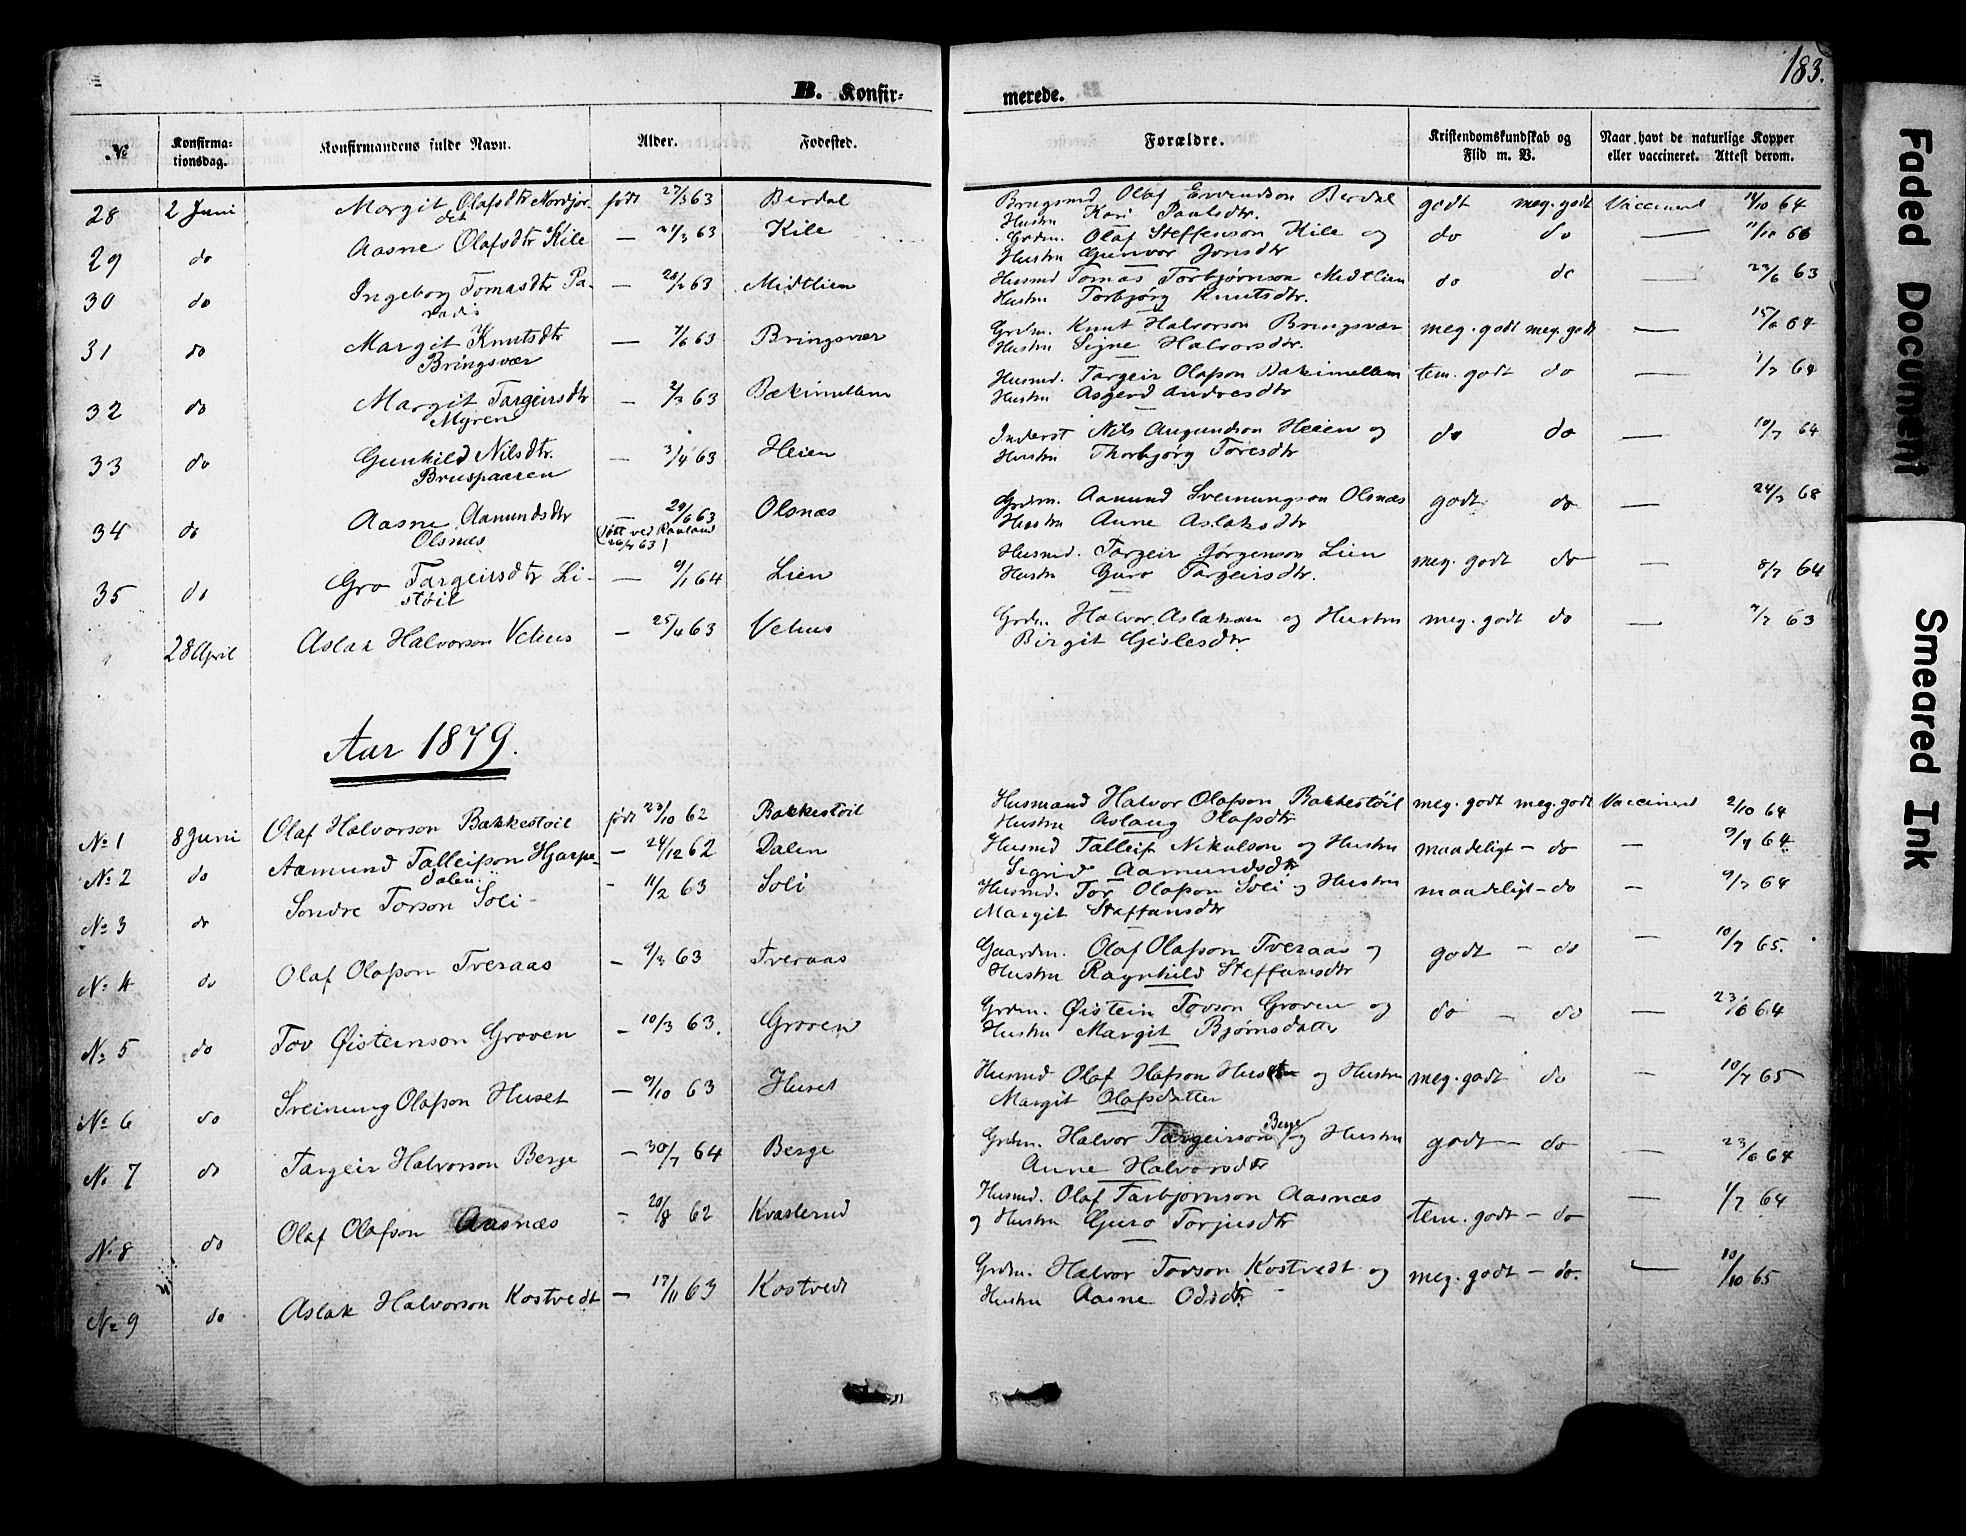 183.
B. Konfir-
merede.
№ Konfirma-tionsdag. Konfirmandens fulde Navn. Alder. Fødested. Forældre. Kristendomskundskab og Flid m. V. Naar havt de naturlige Kopper eller vaccineret. Attest derom.
28 2 Juni Margit Olafsdtr Nordjor- født 27/3 63 Berdal Brugsmd Olaf Eivendson Berdal godt meg. godt Vaccinerd 14/10 64
det Hustru Kari Paulsdtr.
29 do Aasne Olafsdtr Kile — 21/3 63 Kile Grdm. Olaf Steffenson Kile og do do — 11/10 66
Hustru Gunvor Jonsdtr
30 do Ingeborg Tomasdtr Pa- — 28/2 63 Midtlien Husmd Tomas Torbjørnson Midtlien do do — 23/6 63
radis Hustru Torbjørg Knutsdtr.
31 do Margit Knutsdtr — 7/6 63 Bringsvær Grdm. Knut Halvorson Bringsvær meg. godt meg. godt — 15/6 64
Bringsvær Hustru Signe Halvorsdtr.
32 do Margit Targeirsdtr — 2/3 63 Bækimellem Husmd. Targeir Olafson Bækimellem tem. godt do — 1/7 64
Myren Hustru Asgerd Andresdtr
33 do Gunhild Nilsdtr. — 3/4 63 Heien Inderst Nils Augundson Heien og do do — 10/7 64
Bruspaaren Hustru Thorbjørg Toresdtr
34 do Aasne Aamundsdtr — 29/6 63 Olsnæs Grdm. Aamund Sveinungson Olsnæs godt do — 24/7 68
Olsnæs (døbt ved Rauland Hustru Anne Aslaksdtr
26/7 63)
35 do Gro Targeirsdtr Li- — 9/1 64 Lien Husmd. Targeir Jørgenson Lien meg. godt do — 8/7 64
støil Hustru Guro Targeirsdtr.
28 April Aslak Halvorson Vehus — 25/4 63 Vehus Grdm. Halvor Aslakson og Hustru meg. godt do — 4/7 63
Birgit Gislesdtr.
Aar 1879.
№ 1 8 Juni Olaf Halvorson Bakkestøil født 23/10 62 Bakkestøil Husmand Halvor Olafson Bakkestøil meg. godt meg. godt Vaccinerd 2/10 64
Hustru Aslaug Olafsdtr
№ 2 do Aamund Talleifson Hjarpe- — 24/12 62 Dalen Husmd Talleif Nikulson og Hustru maadeligt — do — 9/7 64
dalen. Sigrid Aamundsdtr
№ 3 do Sondre Torson Soli - 11/2 63 Soli Husmd. Tor Olafson Soli og Hustru maadeligt — do — 9/7 64
Margit Staffansdtr
№ 4 do Olaf Olafson Tveraas — 9/3 63 Tveraas Gaardm. Olaf Olafson Tveraas og godt — do — 10/7 65.
Hustru Ragnhild Steffansdtr
№ 5 do Tov Øisteinson Groven — 10/3 63. Groven Grdm. Øistein Tovson Groven og do — do — 23/6 64
Hustru Margit Bjørnsdatter
№ 6 do Sveinung Olafson Huset — 9/10 63 Huset Husmd Olaf Olafson Huset og Hustru meg. godt do — 10/7 65
Margit Olafsdatter
№ 7 do Targeir Halvorson Berge — 30/7 64 Berge Grdm. Halvor Targeirson Berge og Hustru godt — do — 23/6 64
Anne Halvorsdtr
№ 8 do Olaf Olafson Aasnæs — 20/8 62 Kvaslerud Husmd. Olaf Tarbjørnson Aasnæs tem. godt — do — 1/7 64
og Hustru Guro Torjusdtr
№ 9 do Aslak Halvorson Kostvedt — 17/11 63 Kostvedt Grdm. Halvor Tovson Kostvedt og meg. godt — do. — 10/10 65
Hustru Aasne Odsdtr.
Faded Document
Smeared Ink